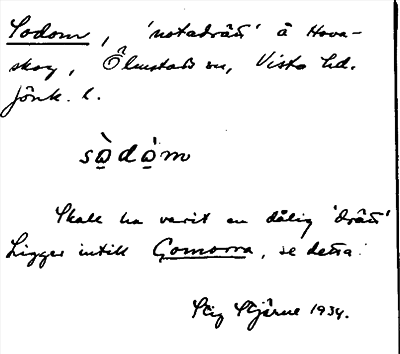 Sodom, 'notadrätt' å Hova-
skog, Ölmstads sn, Vista hd.
Jönk. l.
sò̱dò̱m
Skall ha varit en dålig 'drätt'
Ligger intill Gomorra, se detta!
Stig Stjärne 1934.